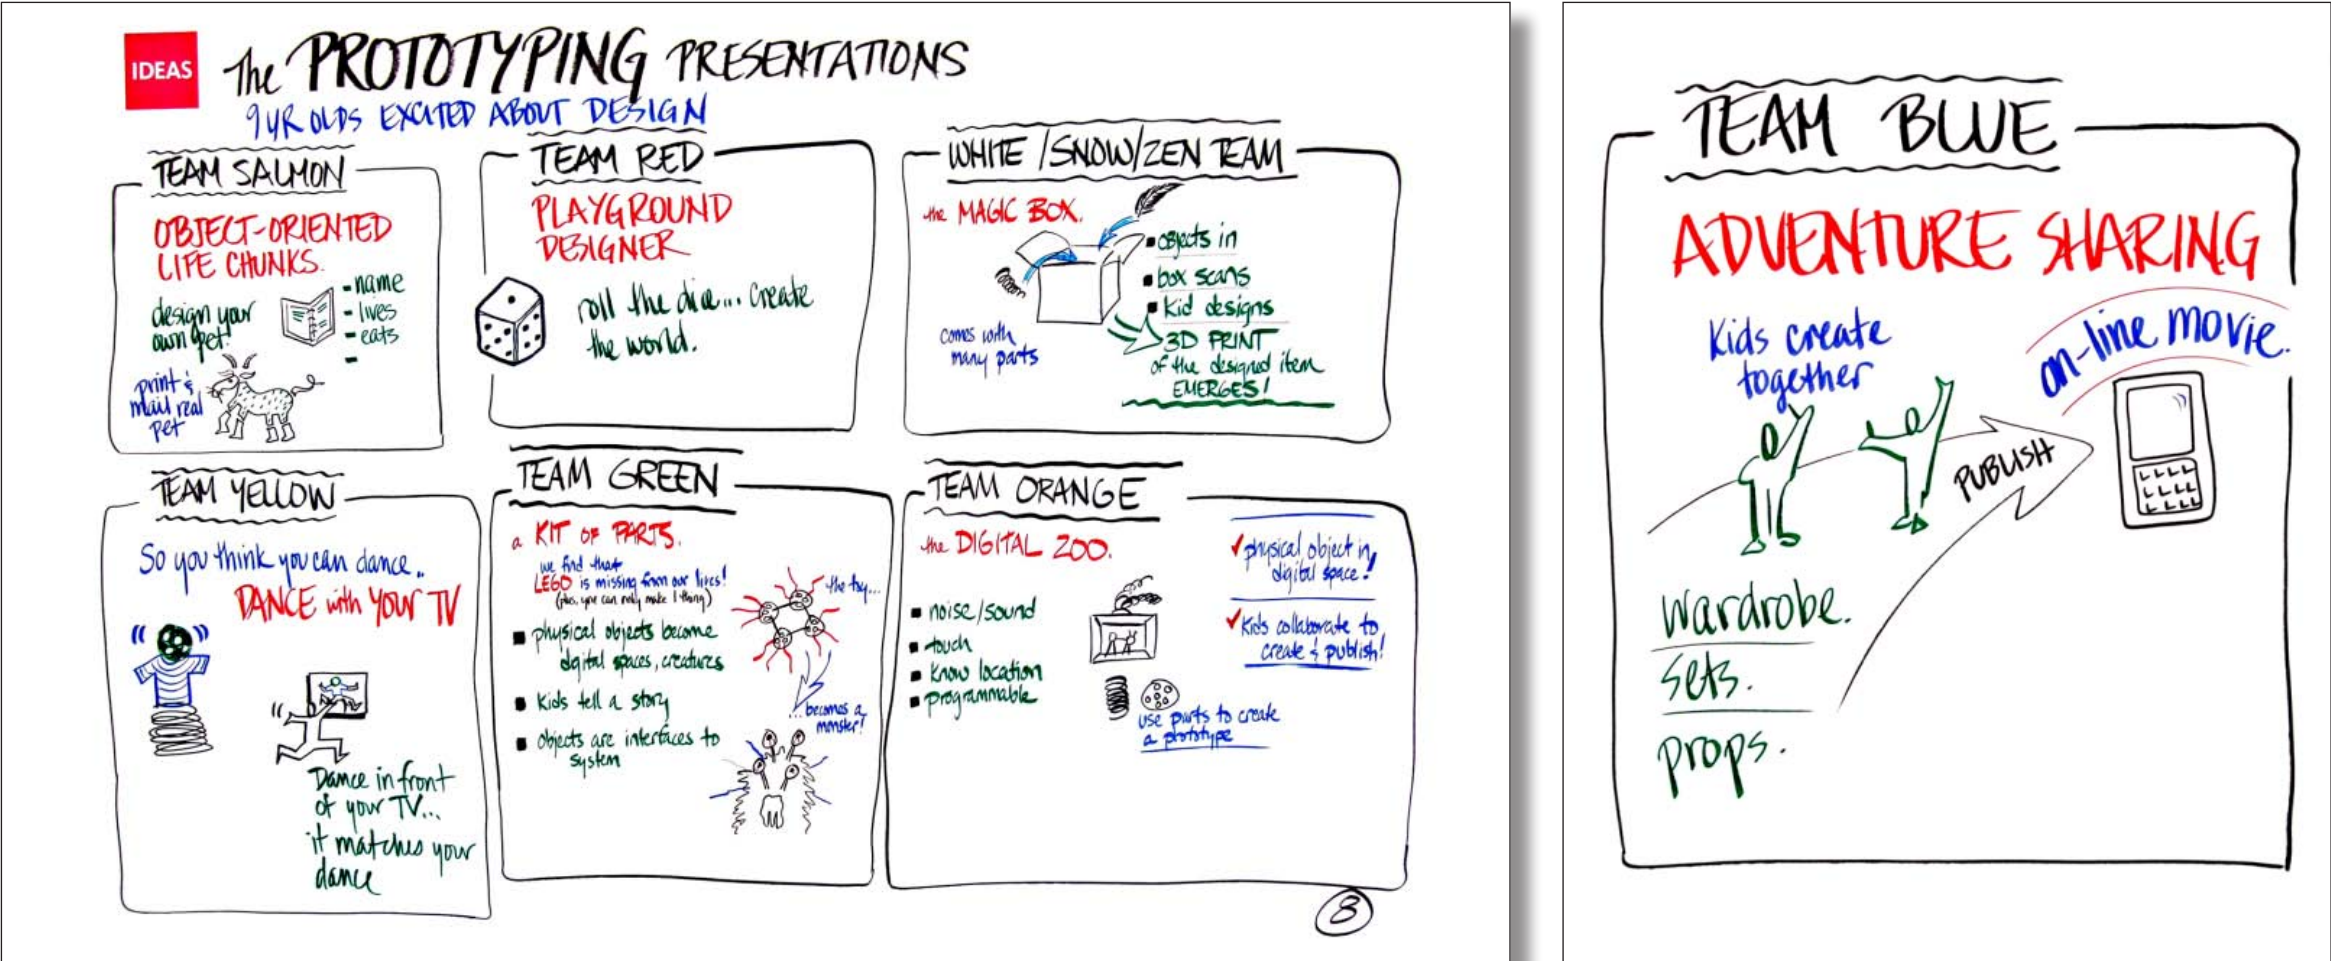 IDEAS
The PROTOTYPING PRESENTATIONS
9 YR OLDS EXCITED ABOUT DESIGN
TEAM SALMON
OBJECT-ORIENTED
LIFE CHUNKS.
design your
own pet!
- name
- lives
- eats
-
print &
mail real
pet
TEAM RED
PLAYGROUND
DESIGNER
roll the dice... create
the world.
WHITE/SNOW/ZEN TEAM
the MAGIC BOX.
▪ objects in
▪ box scans
▪ Kid designs
3D PRINT
of the designed item
EMERGES!
comes with
many parts
TEAM YELLOW
So you think you can dance..
DANCE with YOUR TV
Dance in front
of your TV...
it matches your
dance
TEAM GREEN
a KIT OF PARTS.
we find that
LEGO is missing from our lives!
(plus, you can only make 1 thing)
▪ physical objects become
digital spaces, creatures
▪ Kids tell a story
▪ objects are interfaces to
system
the toy...
...becomes a
monster!
TEAM ORANGE
the DIGITAL ZOO.
▪ noise/sound
▪ touch
▪ Know location
▪ programmable
✓ physical object in
digital space!
✓ Kids collaborate to
create & publish!
use parts to create
a prototype
8
TEAM BLUE
ADVENTURE SHARING
Kids create
together
on-line movie.
PUBLISH
Wardrobe.
sets.
props.